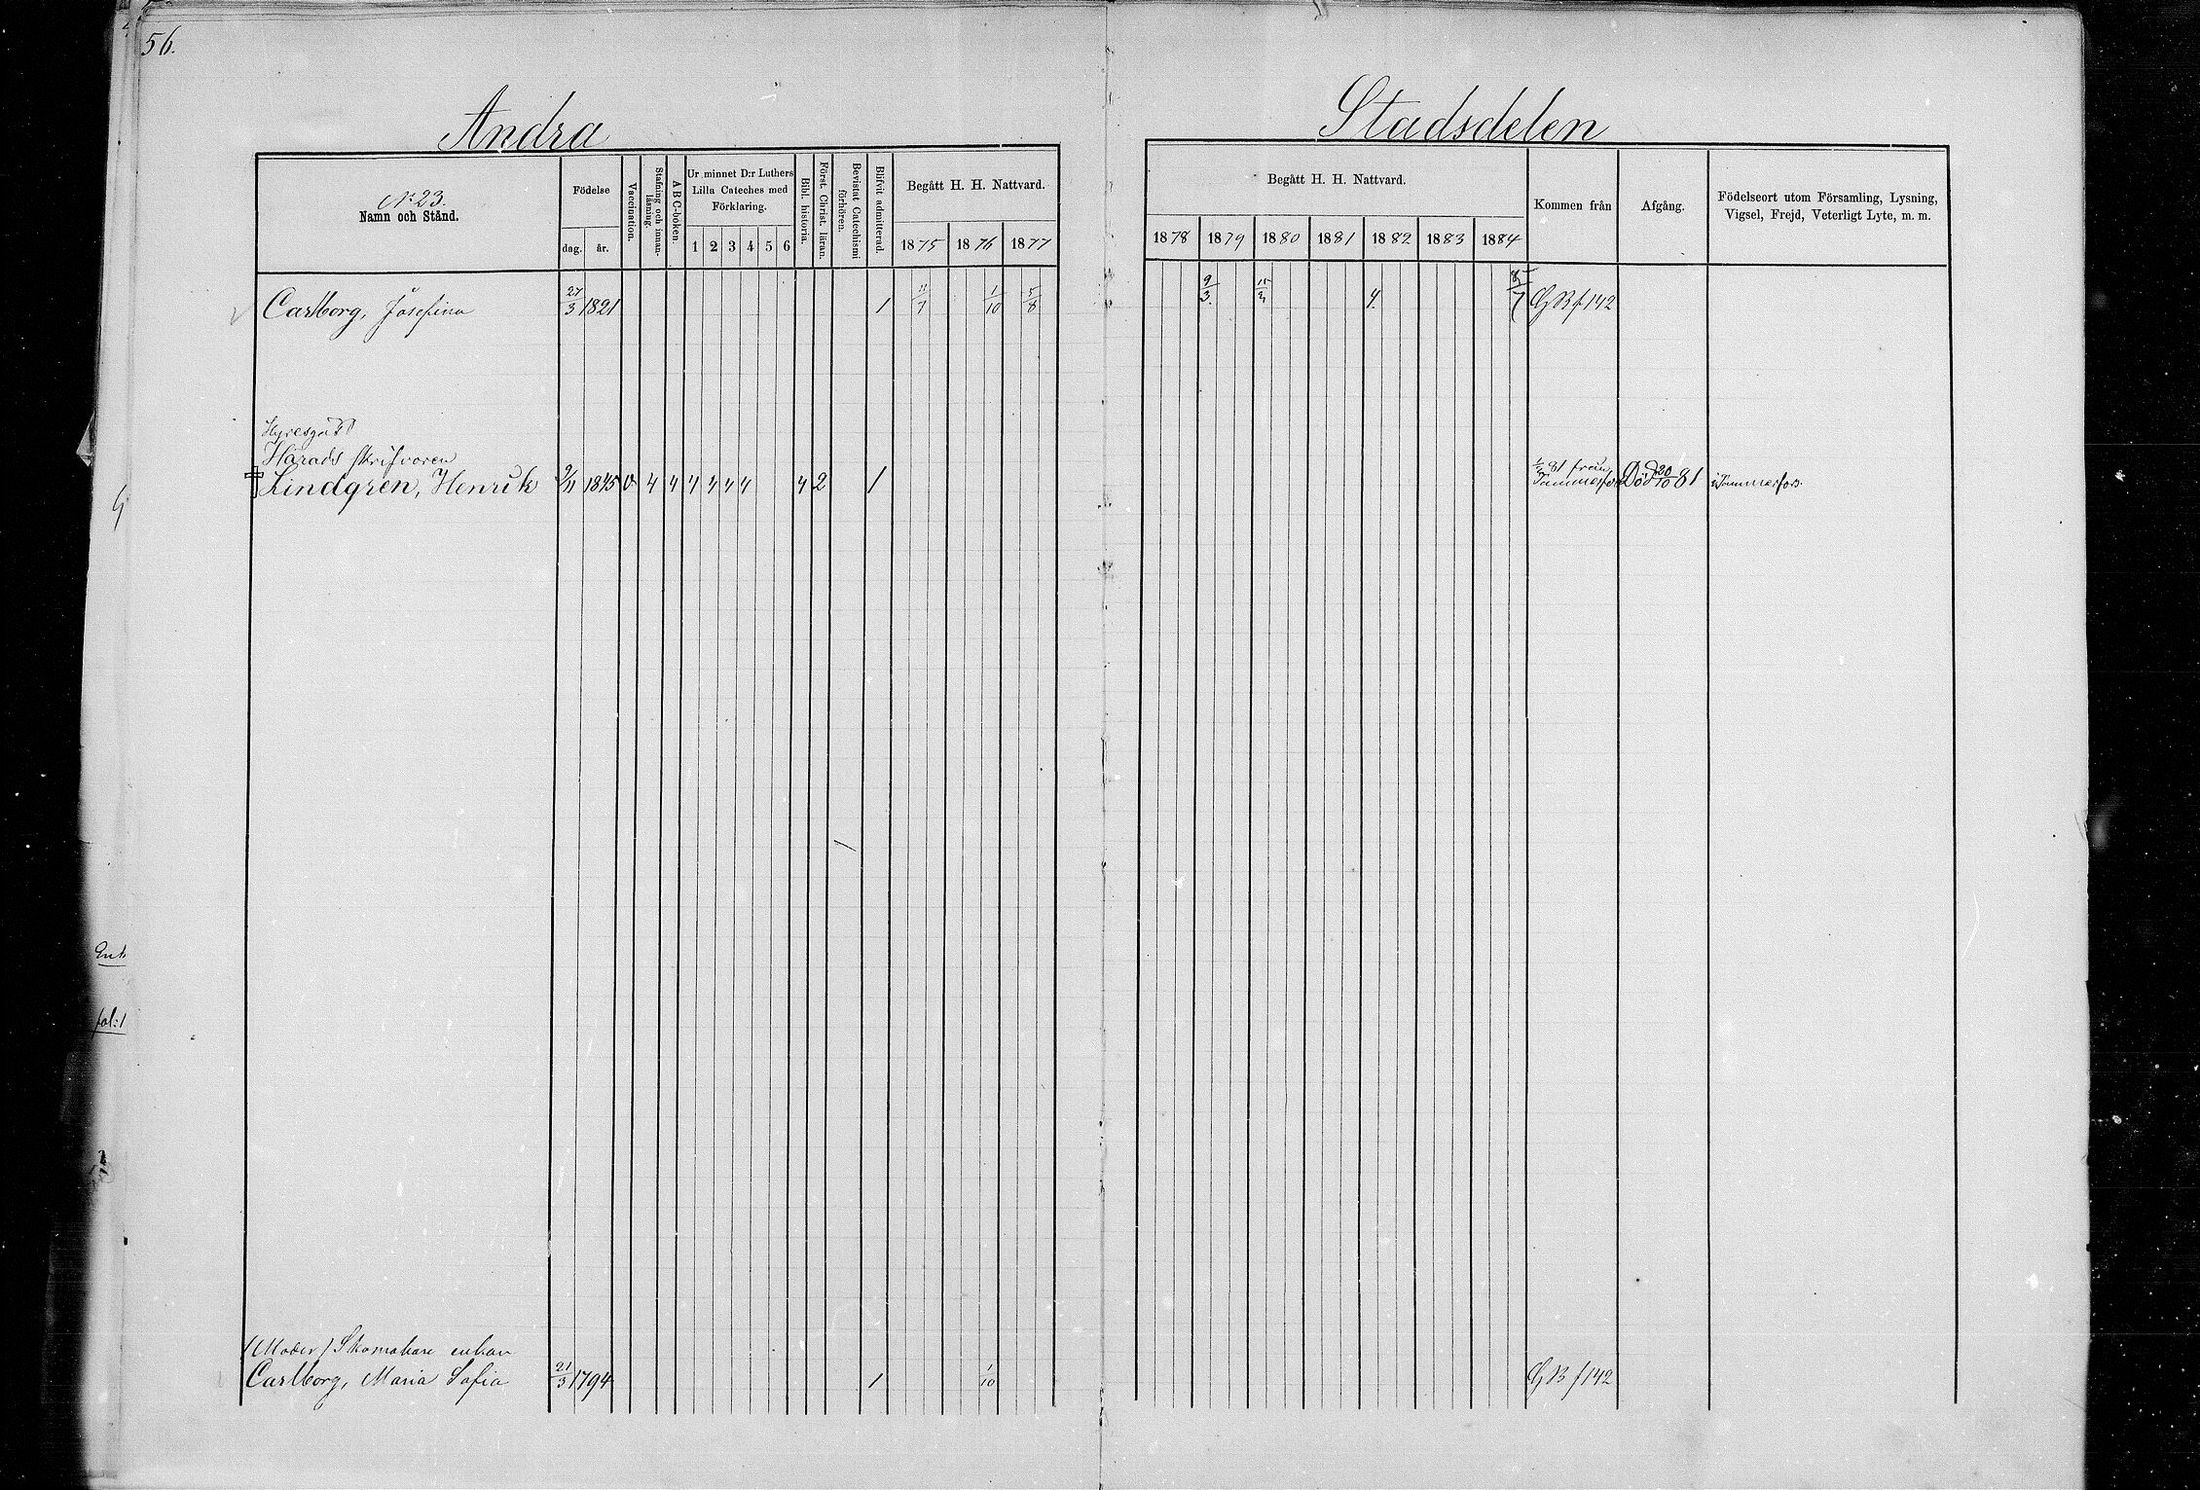 56.
Andra Stadsdelen
No 23.
Namn och Stånd.
Födelse
dag. år.
Vaccination.
Stafning och innanläsning.
A B C-boken.
Ur minnet D:r Luthers Lilla Cateches med Förklaring.
1 2 3 4 5 6
Bibl. historia.
Först. Christ. läran.
Bevistat Catechismi förhören.
Blifvit admitterad.
Begått H. H. Nattvard.
1875 1876 1877
Begått H. H. Nattvard.
1878 1879 1880 1881 1882 1883 1884
Kommen från
Afgång.
Födelseort utom Församling, Lysning, Vigsel, Frejd, Veterligt Lyte, m. m.
Carlborg, Josefina 27/3 1821 1 11/7 1/10 5/8 9/3. 4. GB f 142
Hyresgäst
Härads skrifvaren
Lindgren, Henrik 9/11 1845 v. 4 4 4 4 4 4 4 2 1 81 från Tammerfors Död 20/10 81 Tammerfors.
(Moder) Skomakare enkan
Carlborg, Maria Sofia 21/3 1794 1 1/10 GB f 142
Enk
fol: 1